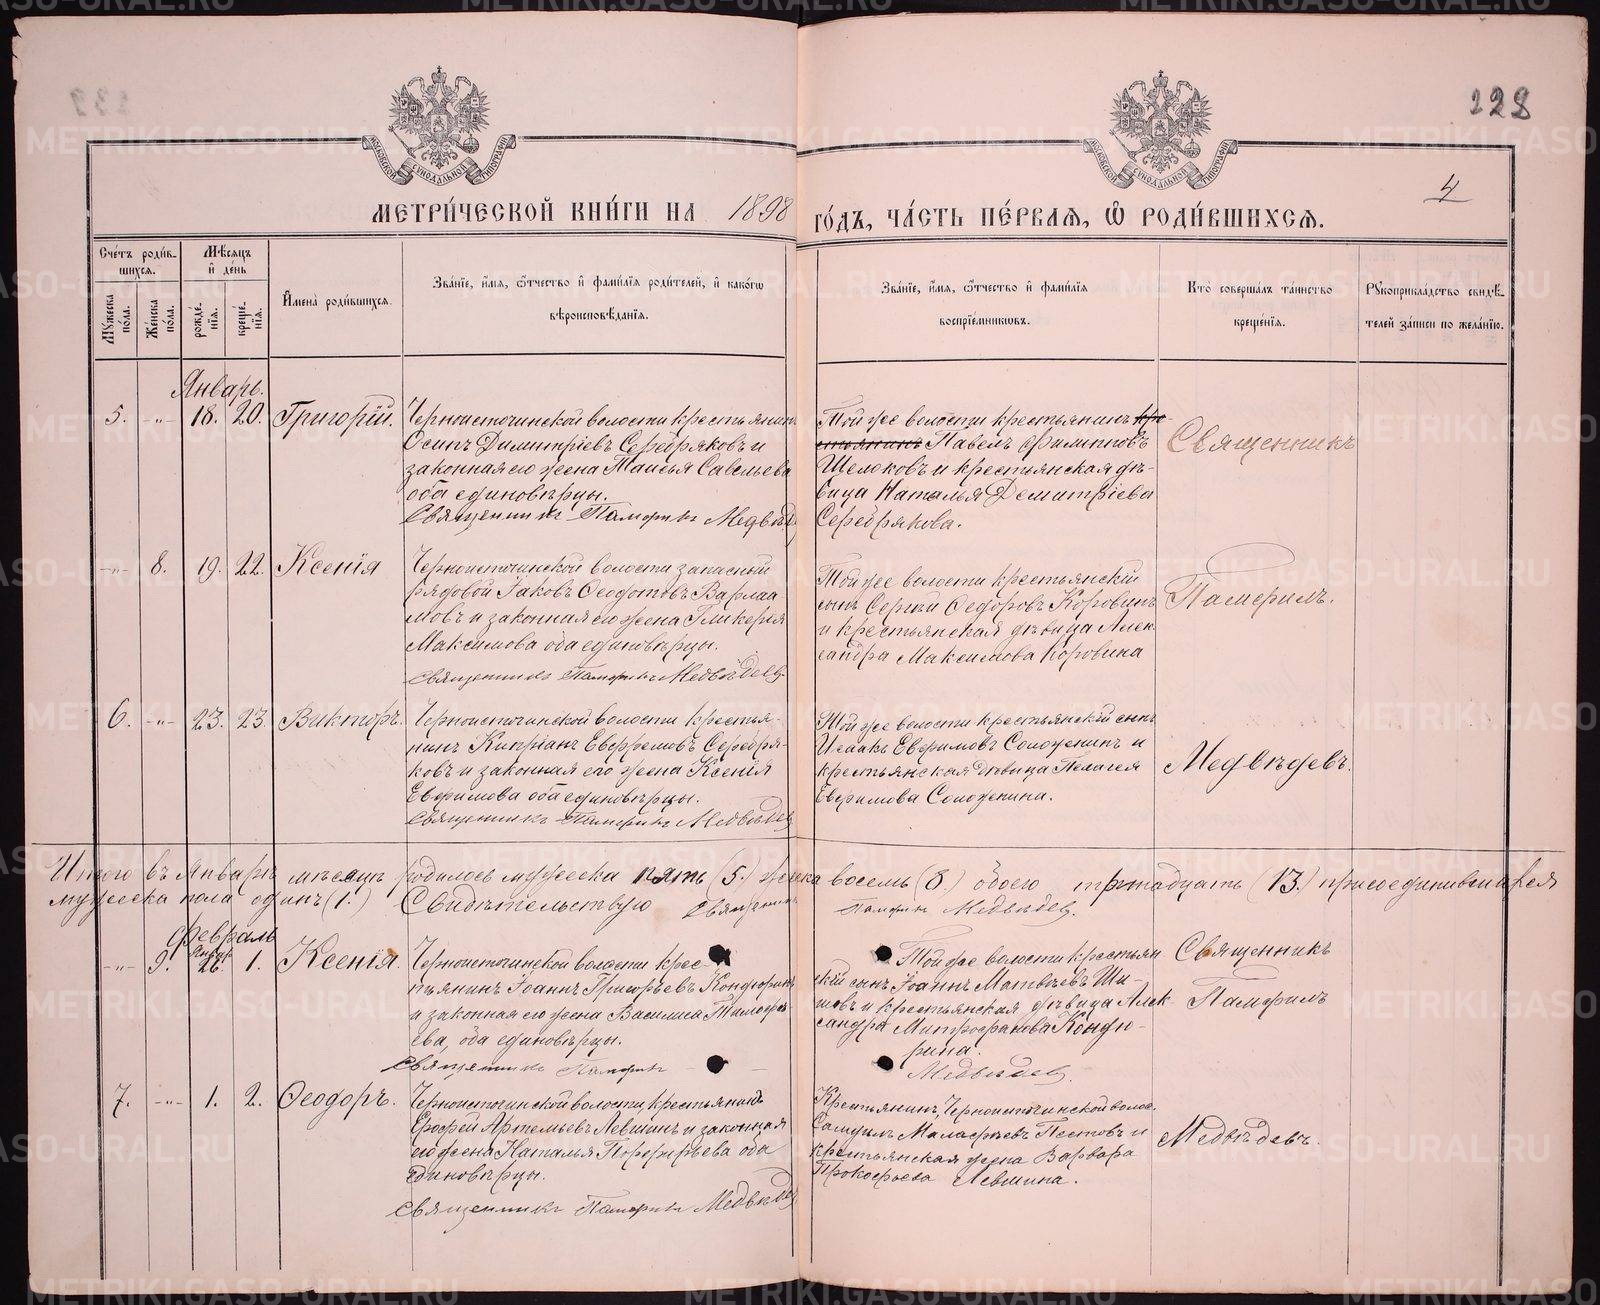 228
4
МЕТРИ́ЧЕСКОЙ КНИ́ГИ НА 1898 ГО́ДЪ, ЧА́СТЬ ПЕ́РВАѦ, Ѽ РОДИ́ВШИХСѦ.
Сче́тъ роди́в-
шихсѧ.
Мѣ́сѧцъ
и҆ де́нь
Мꙋ́жеска
по́ла.
Же́нска
по́ла.
рожде́-
нїѧ.
креще́-
нїѧ.
И҆мена̀ роди́вшихсѧ.
Зва́нїе, и҆́мѧ, ѻ҆́тчество и҆ фами́лїѧ роди́телей, и҆ како́гѡ
вѣроисповѣ́данїѧ.
Зва́нїе, и҆́мѧ, ѻ҆́тчество и҆ фами́лїѧ
воспрїе́мникѡвъ.
Кто̀ соверша́лъ та́инство
креще́нїѧ.
Рꙋкоприкла́дство свидѣ́-
телей за́писи по жела́нїю.
Январь.
5. -"- 18. 20. Григорій.
Черноисточинской волости крестьянинъ
Осипъ Димитріевъ Серебряковъ и
законная его жена Таисья Савельева
оба единовѣрцы.
Священникъ Памфилъ Медвѣд
Той же волости крестьянинъ кре-
стьянинъ Павелъ Филипповъ
Шелоковъ и крестьянская дѣ-
вица Наталья Димитріева
Серебрякова.
Священникъ
-"- 8. 19. 22. Ксенія
Черноисточинской волости запасный
рядовой Іаковъ Ѳеодотовъ Варлаа
мовъ и законная его жена Гликерія
Максимова оба единовѣрцы.
Священникъ Памфилъ Медвѣдевъ
Той же волости крестьянскій
сынъ Сергѣй Ѳедоровъ Коровинъ
и крестьянская дѣвица Алек
сандра Максимова Коровина
Памфилъ.
6. -"- 23. 23. Викторъ.
Черноисточинской волости крестья-
нинъ Кипріанъ Евфремовъ Серебря-
ковъ и законная его жена Ксенія
Евфимова оба единовѣрцы.
Священникъ Памфилъ Медвѣдев
Той же волости крестьянскій сынъ
Исаакъ Евфимовъ Соложенинъ и
крестьянская дѣвица Пелагея
Евфимова Соложенина.
Медвѣдевъ.
Итого въ Январѣ мѣсяцѣ родилось мужеска пять (5.) женска восемь (8.) обоего тринадцать (13.) присоединившихся
мужеска пола одинъ (1.) Свидѣтельствую Священникъ Памфилъ Медвѣдев.
Февраль
-"- 9. Январ 26. 1. Ксенія.
Черноисточинской волости крес-
тьянинъ Іоаннъ Григорьевъ Кондюринъ
и законная его жена Василиса Тимофе-
ева, оба единовѣрцы.
Священникъ Памфилъ
Той же волости крестьян
скій сынъ Іоаннъ Матвѣевъ Ши-
шовъ и крестьянская дѣвица Алек
сандра Митрофанова Кондю-
рина.
Медвѣдевъ.
Священникъ
Памфилъ
7. -"- 1. 2. Ѳеодоръ.
Черноисточинской волости, крестьянинъ
Ерофей Артемьевъ Левшинъ и законная
его жена Наталья Порфирьева оба
единовѣрцы.
Священникъ Памфилъ Медвѣде
Крестьянинъ, Черноисточинской волос.
Самуилъ Малафѣевъ Пестовъ и
крестьянская жена Варвара
Прокофьева Левшина.
Медвѣдевъ.